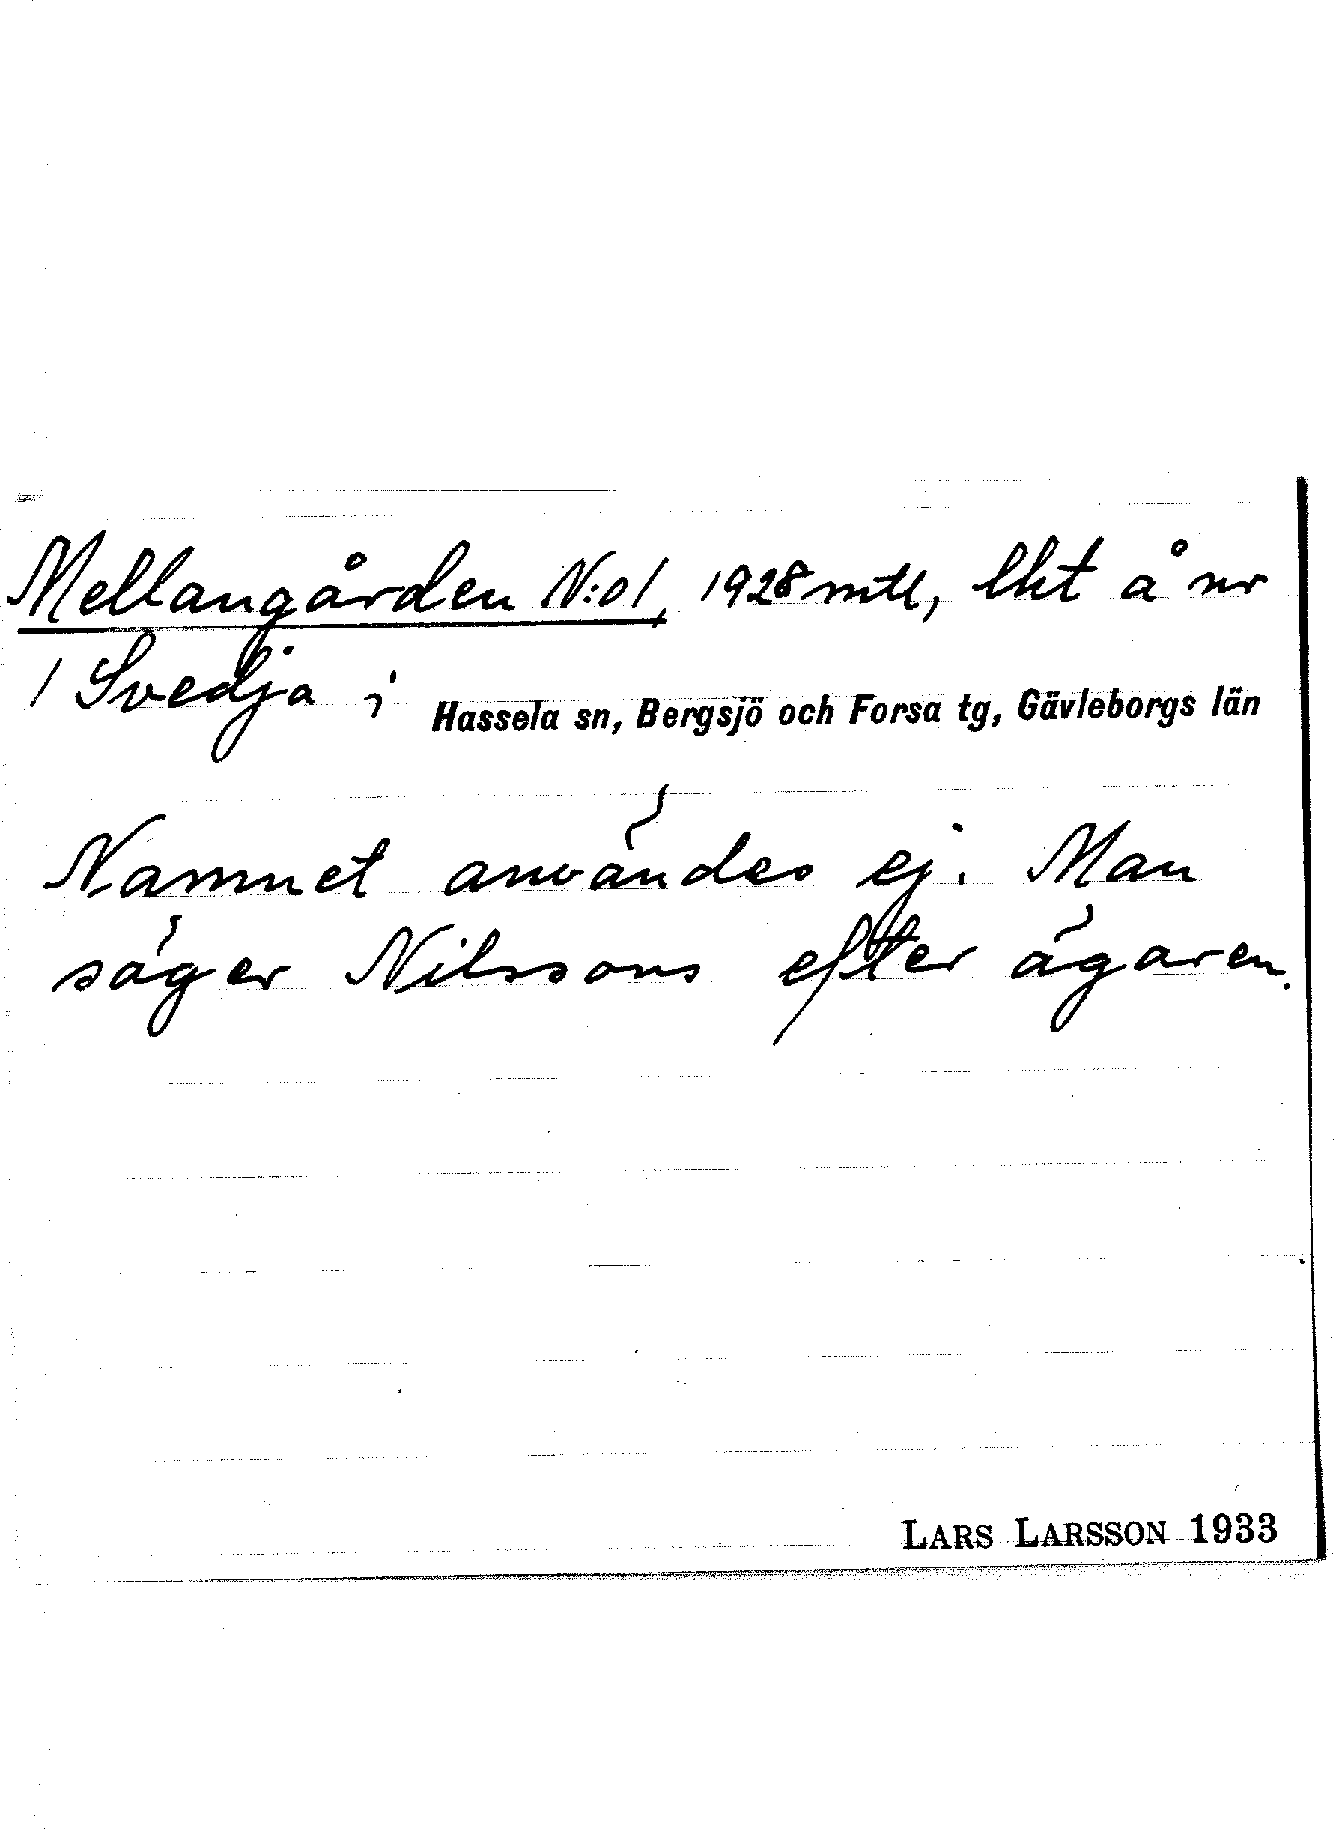 Mellangården N:o 1, 1928 mtl, lht å nr
1 Svedja i Hassela sn, Bergsjö och Forsa tg, Gävleborgs län
Namnet användes ej. Man
säger Nilssons efter ägaren.
LARS LARSSON 1933